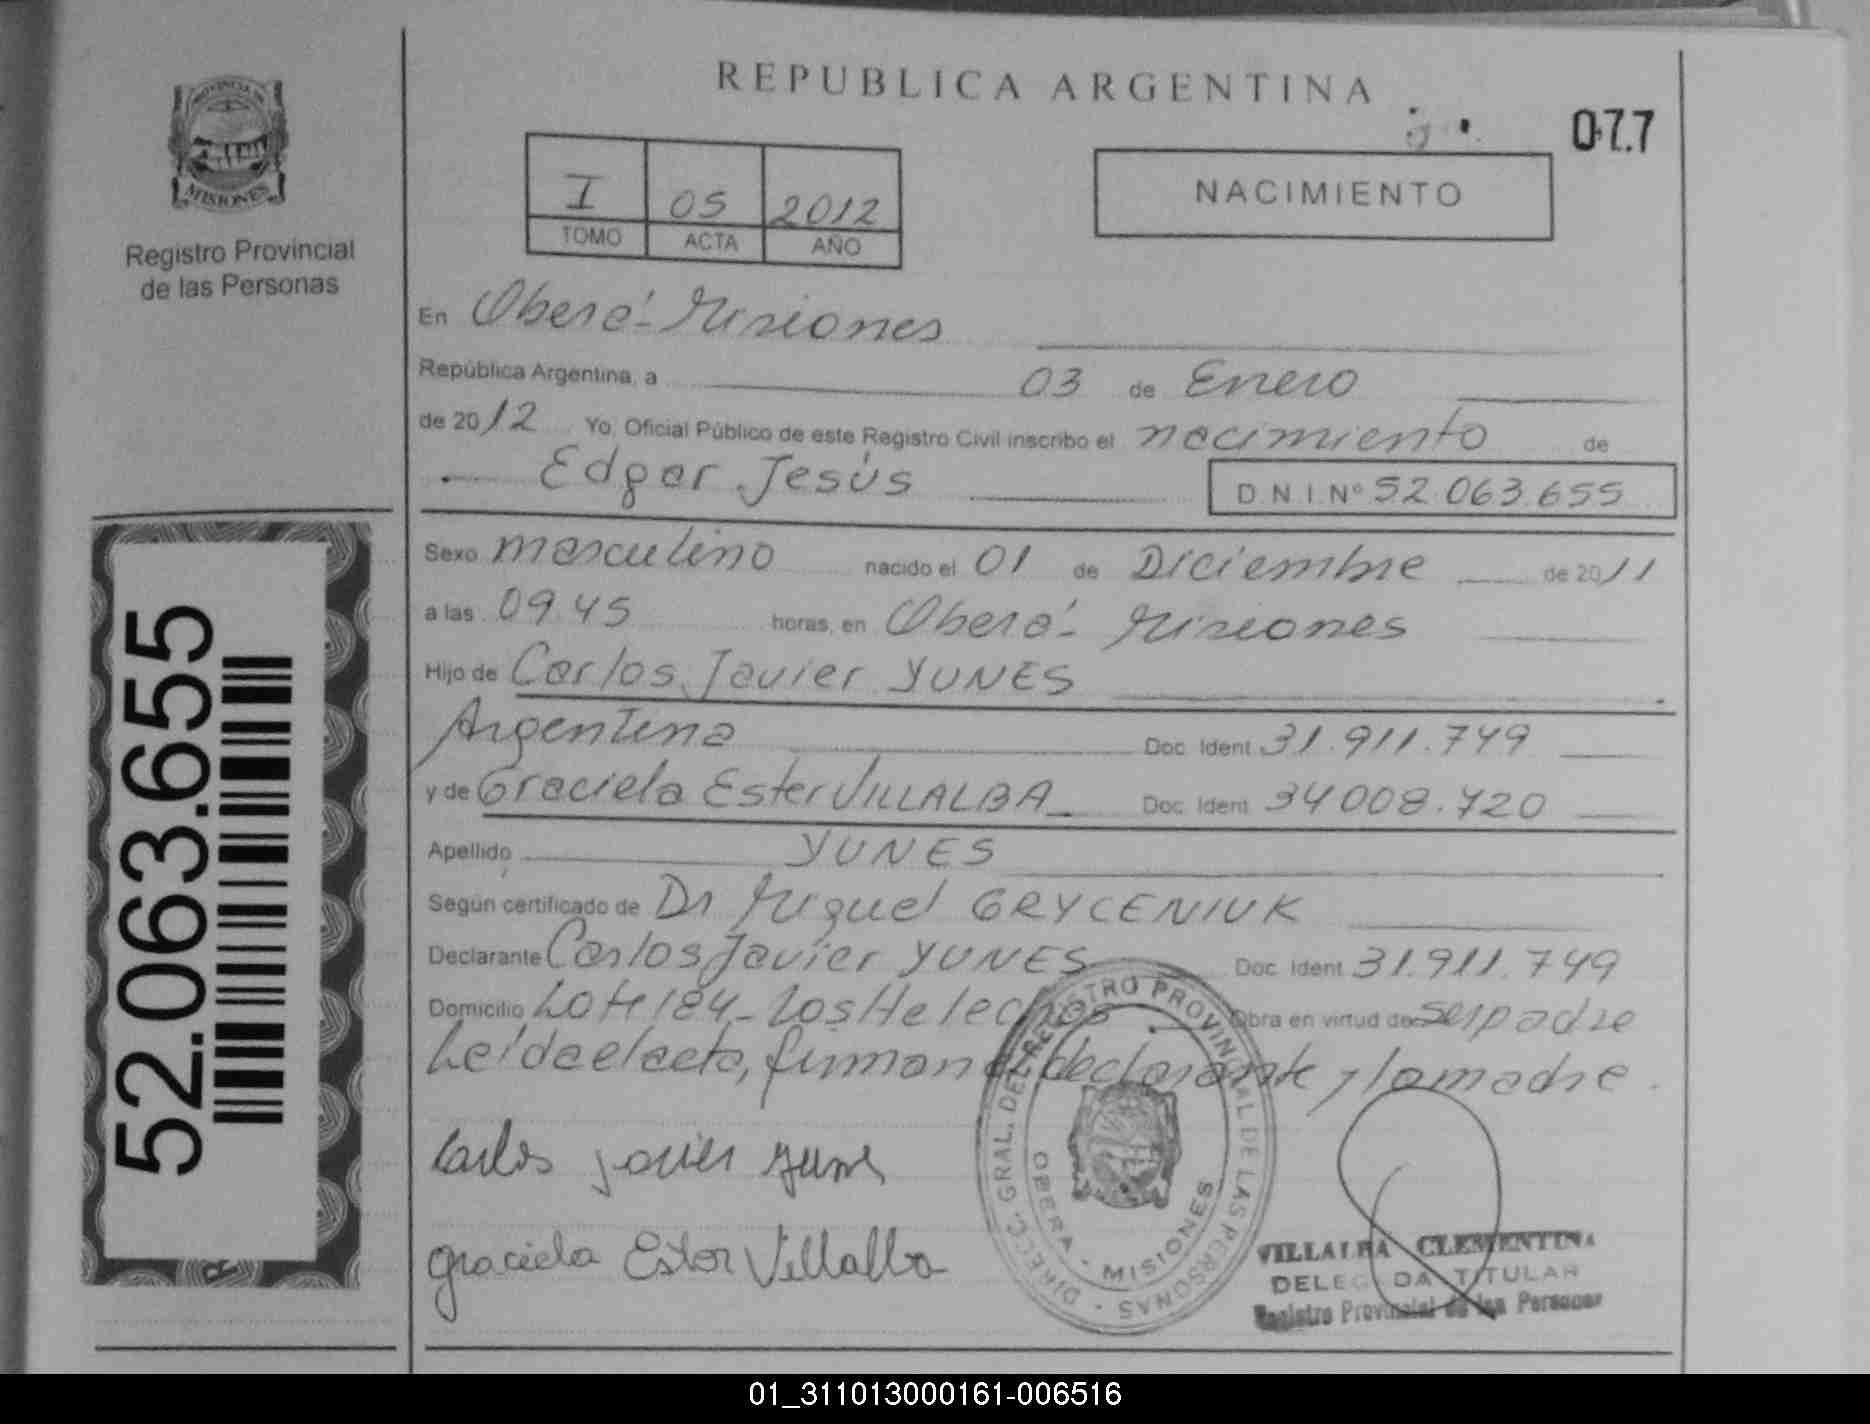 REPUBLICA ARGENTINA
077
PROVINCIA DE
MISIONES
Registro Provincial
de las Personas
I 05 2012
TOMO ACTA AÑO
NACIMIENTO
En Oberá - Misiones
República Argentina, a 03 de Enero
de 2012 Yo, Oficial Público de este Registro Civil inscribo el nacimiento de
Edgar Jesús D.N.I. Nº 52.063.655
Sexo masculino nacido el 01 de Diciembre de 2011
a las 09.45 horas, en Oberá - Misiones
Hijo de Carlos Javier YUNES
Argentina Doc. Ident. 31.911.749
y de Graciela Ester VILLALBA Doc. Ident. 34008.720
Apellido YUNES
Según certificado de Dr Miguel GRYCENIUK
Declarante Carlos Javier YUNES Doc. Ident. 31.911.749
Domicilio Lote 184 - Los Helechos Obra en virtud de ser padre
Leída el acta, firman el declarante y la madre.
Carlos Javier Yunes
Graciela Ester Villalba
DIRECC. GRAL. DEL REGISTRO PROVINCIAL DE LAS PERSONAS
OBERA - MISIONES
VILLALBA CLEMENTINA
DELEGADA TITULAR
Registro Provincial de las Personas
52.063.655
01_311013000161-006516